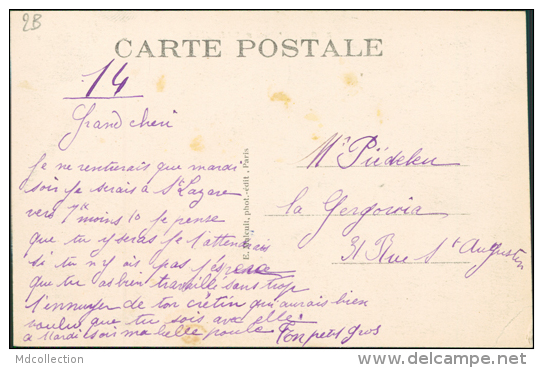 2B
CARTE POSTALE
14
Grand cheri
Je ne rentrerais que mardi
soir je serais à St Lazare
vers 7h moins 10 je pense
que tu y seras je l'attendais
si tu n'y ais pas j'espere
que tu as bien travaillé sans trop
t'ennuyer de ton crétin qui aurais bien
voulu que tu sois avec elle.
a Mardi soir ma belle poule Ton petit gros
Mr Piedeleu
la Gergovia
31 Rue St Augustin
phot.-édit., Paris
Mdcollection
delcampe.net